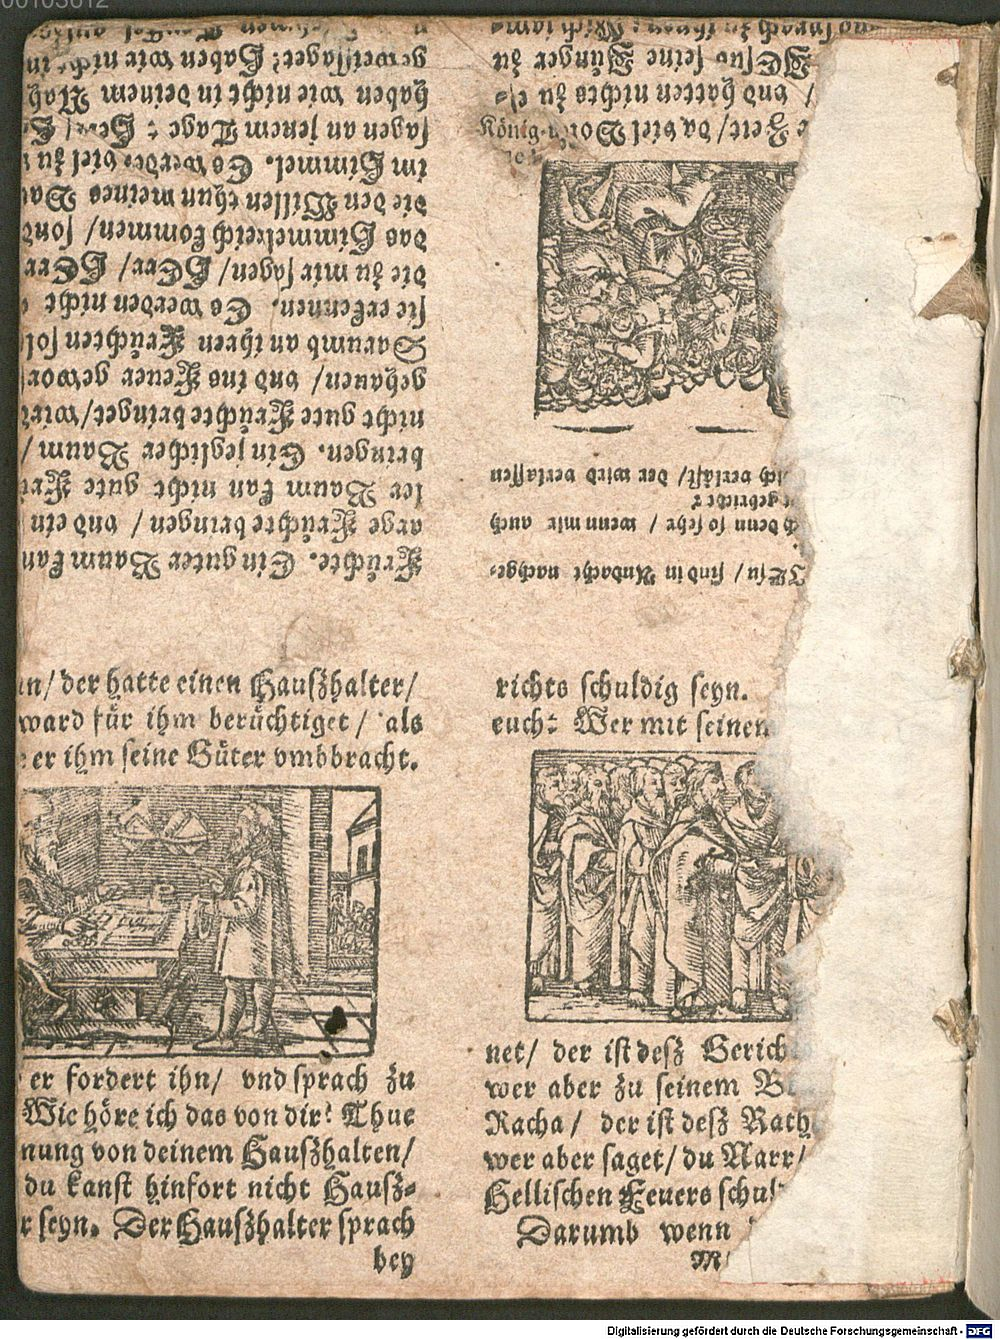 00103012
Früchte. Ein guter Baum kan
arge Früchte bringen / vnd ein
ler Baum kan nicht gute Frü
bringen. Ein jeglicher Baum /
nicht gute Früchte bringet / wir
gehauen / vnd ins Feuer gewor
Darumb an ihren Früchten sol
sie erkennen. Es werden nicht
die zu mir sagen / HErr / HErr
das Himmelreich kommen / sond
die den Willen thun meines Va
im Himmel. Es werden viel zu
sagen an jenem Tage: HErr /
haben wir nicht in deinem Nah
geweissaget: Haben wir nicht in
JEsu / sind in Andacht nachge-
ch denn so sehr / wenn mir auch
gebricht?
ich verläst / der wird verlassen
e Zeit / da viel
König
/ vnd hatten nichts zu es-
JEsus seine Jünger zu
vnd sprach zu ihnen: Mich jam
nn / der hatte einen Hauszhalter /
ward für ihm berüchtiget / als
er ihm seine Güter vmbbracht.
er fordert ihn / vnd sprach zu
Wie höre ich das von dir? Thue
nung von deinem Hauszhalten /
du kanst hinfort nicht Hausz-
r seyn. Der Hauszhalter sprach
bey
richts schuldig seyn.
euch: Wer mit seinem
net / der ist desz Gerich
wer aber zu seinem B
Racha / der ist desz Rath
wer aber saget / du Narr /
Hellischen Feuers schul
Darumb wenn
M
Digitalisierung gefördert durch die Deutsche Forschungsgemeinschaft - DFG